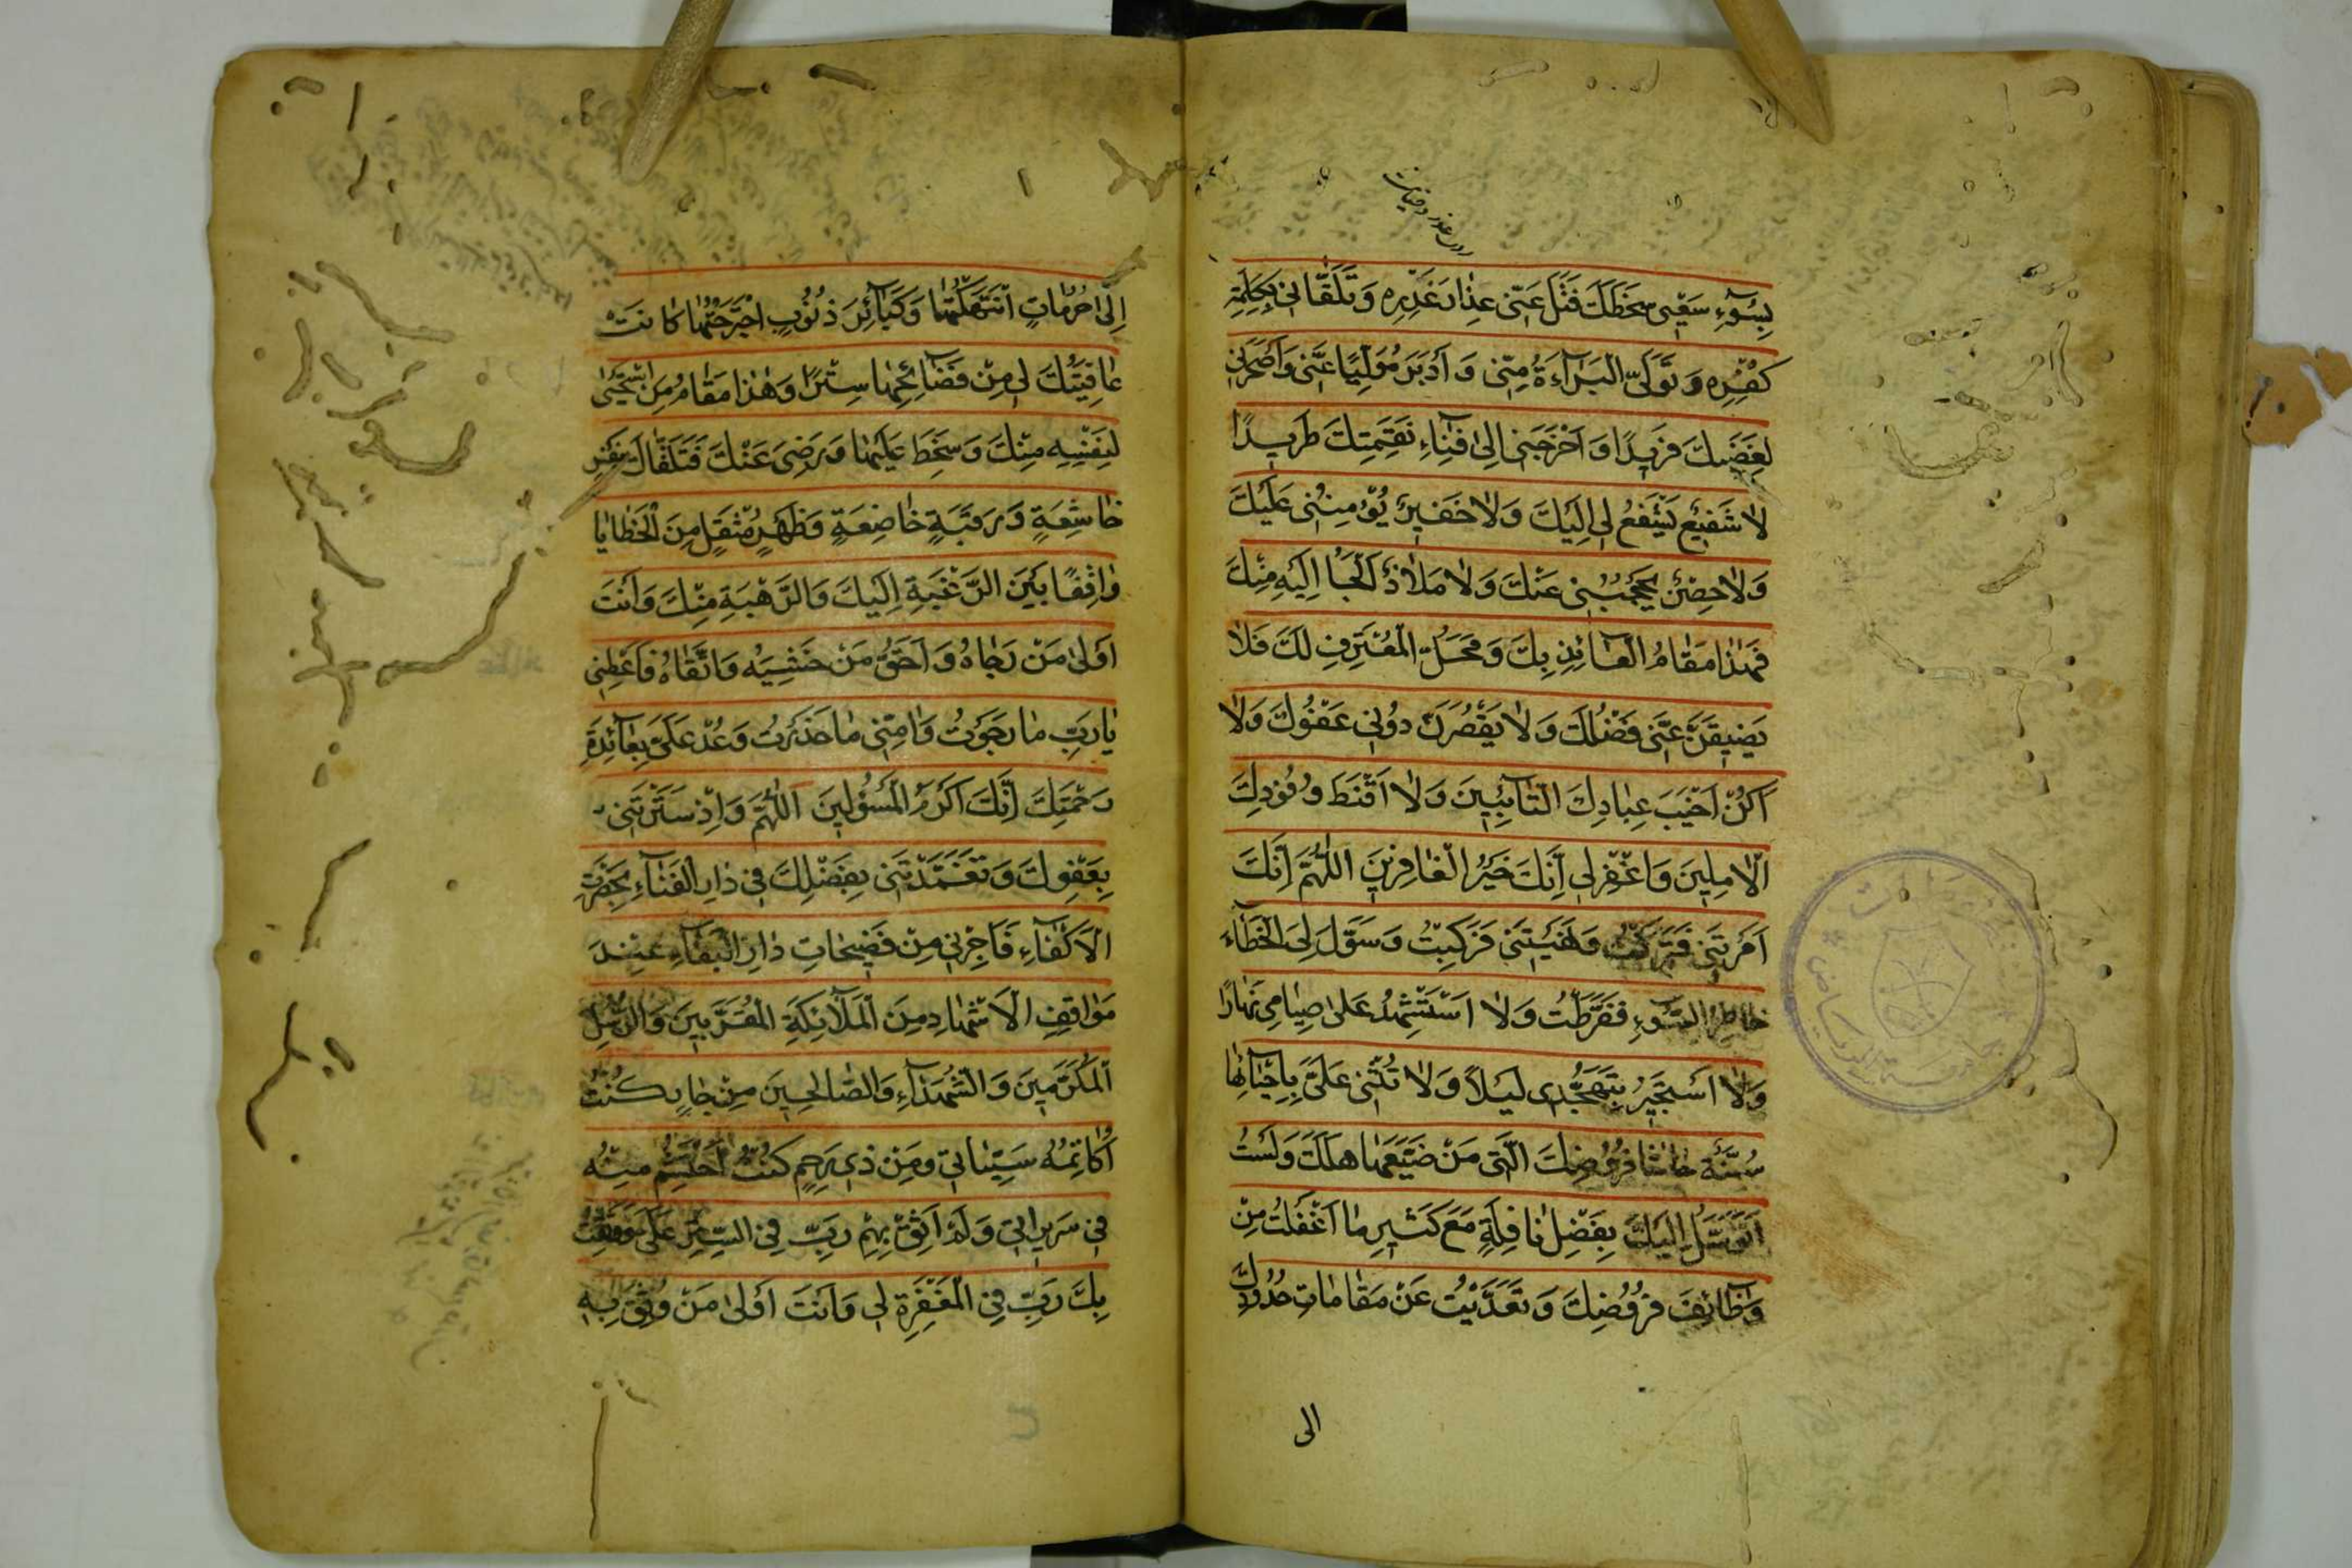 بِسُوٓءِ سَعْيِي سَخَطَكَ فَتَلَ عَنِّي عِذَارَ غَدْرِهِ وَتَلَقَّانِي بِكَلِمَةِ
كُفْرِهِ وَتَوَلَّى الْبَرَآءَةَ مِنِّي وَ أَدْبَرَ مُوَلِّيًا عَنِّي وَأَصْحَرَنِي
لِغَضَبِكَ فَرِيدًا وَ أَخْرَجَنِي إِلَىٰ فِنَآءِ نَقِمَتِكَ طَرِيدًا
لَا شَفِيعٌ يَشْفَعُ لِي إِلَيْكَ وَلَا خَفِيرٌ يُؤْمِنُنِي عَلَيْكَ
وَلَا حِصْنٌ يَحْجُبُنِي عَنْكَ وَلَا مَلَاذٌ أَلْجَأُ إِلَيْهِ مِنْكَ
فَهٰذَا مَقَامُ الْعَآئِذِ بِكَ وَمَحَلُّ الْمُعْتَرِفِ لَكَ فَلَا
يَضِيقَنَّ عَنِّي فَضْلُكَ وَلَا يَقْصُرَنَّ دُونِي عَفْوُكَ وَلَا
أَكُنْ أَخْيَبَ عِبَادِكَ التَّآئِبِينَ وَلَا أَقْنَطَ وُفُودِكَ
الْآمِلِينَ وَاغْفِرْ لِي إِنَّكَ خَيْرُ الْغَافِرِينَ اللّٰهُمَّ إِنَّكَ
أَمَرْتَنِي فَتَرَكْتُ وَنَهَيْتَنِي فَرَكِبْتُ وَسَوَّلَ لِيَ الْخَطَآءَ
خَاطِرُ السُّوٓءِ فَفَرَّطْتُ وَلَا أَسْتَشْهِدُ عَلَىٰ صِيَامِي نَهَارًا
وَلَا أَسْتَجِيرُ بِتَهَجُّدِي لَيْلًا وَلَا تُثْنِي عَلَيَّ بِإِحْيَآئِهَا
سُنَّةٌ حَاشَا فُرُوضِكَ الَّتِي مَنْ ضَيَّعَهَا هَلَكَ وَلَسْتُ
أَتَوَسَّلُ إِلَيْكَ بِفَضْلِ نَافِلَةٍ مَعَ كَثِيرِ مَا أَغْفَلْتُ مِنْ
وَظَآئِفِ فُرُوضِكَ وَتَعَدَّيْتُ عَنْ مَقَامَاتِ حُدُودِكَ
الى
إِلَىٰ حُرُمَاتٍ انْتَهَكْتُهَا وَكَبَآئِرَ ذُنُوبٍ اجْتَرَحْتُهَا كَانَتْ
عَافِيَتُكَ لِي مِنْ فَضَآئِحِهَا سِتْرًا وَهٰذَا مَقَامُ مَنِ اسْتَحْيَىٰ
لِنَفْسِهِ مِنْكَ وَسَخِطَ عَلَيْهَا وَرَضِيَ عَنْكَ فَتَلَقَّاكَ بِنَفْسٍ
خَاشِعَةٍ وَرَقَبَةٍ خَاضِعَةٍ وَظَهْرٍ مُثْقَلٍ مِنَ الْخَطَايَا
وَاقِفًا بَيْنَ الرَّغْبَةِ إِلَيْكَ وَالرَّهْبَةِ مِنْكَ وَأَنْتَ
أَوْلَىٰ مَنْ رَجَاهُ وَ أَحَقُّ مَنْ خَشِيَهُ وَاتَّقَاهُ فَأَعْطِنِي
يَا رَبِّ مَا رَجَوْتُ وَآمِنِّي مَا حَذِرْتُ وَعُدْ عَلَيَّ بِعَآئِدَةِ
رَحْمَتِكَ إِنَّكَ أَكْرَمُ الْمَسْؤُلِينَ اللّٰهُمَّ وَإِذْ سَتَرْتَنِي
بِعَفْوِكَ وَتَغَمَّدْتَنِي بِفَضْلِكَ فِي دَارِ الْفَنَآءِ بِحَضْرَةِ
الْأَكْفَآءِ فَأَجِرْنِي مِنْ فَضِيحَاتِ دَارِ الْبَقَآءِ عِنْدَ
مَوَاقِفِ الْأَشْهَادِ مِنَ الْمَلَآئِكَةِ الْمُقَرَّبِينَ وَالرُّسُلِ
الْمُكَرَّمِينَ وَالشُّهَدَآءِ وَالصَّالِحِينَ مِنْ جَارٍ كُنْتُ
أُكَاتِمُهُ سَيِّئَاتِي وَمِنْ ذِي رَحِمٍ كُنْتُ أَحْتَشِمُ مِنْهُ
فِي سَرِيرَاتِي وَلَمْ أَثِقْ بِهِمْ رَبِّ فِي السِّتْرِ عَلَيَّ وَوَثِقْتُ
بِكَ رَبِّ فِي الْمَغْفِرَةِ لِي وَأَنْتَ أَوْلَىٰ مَنْ وُثِقَ بِهِ